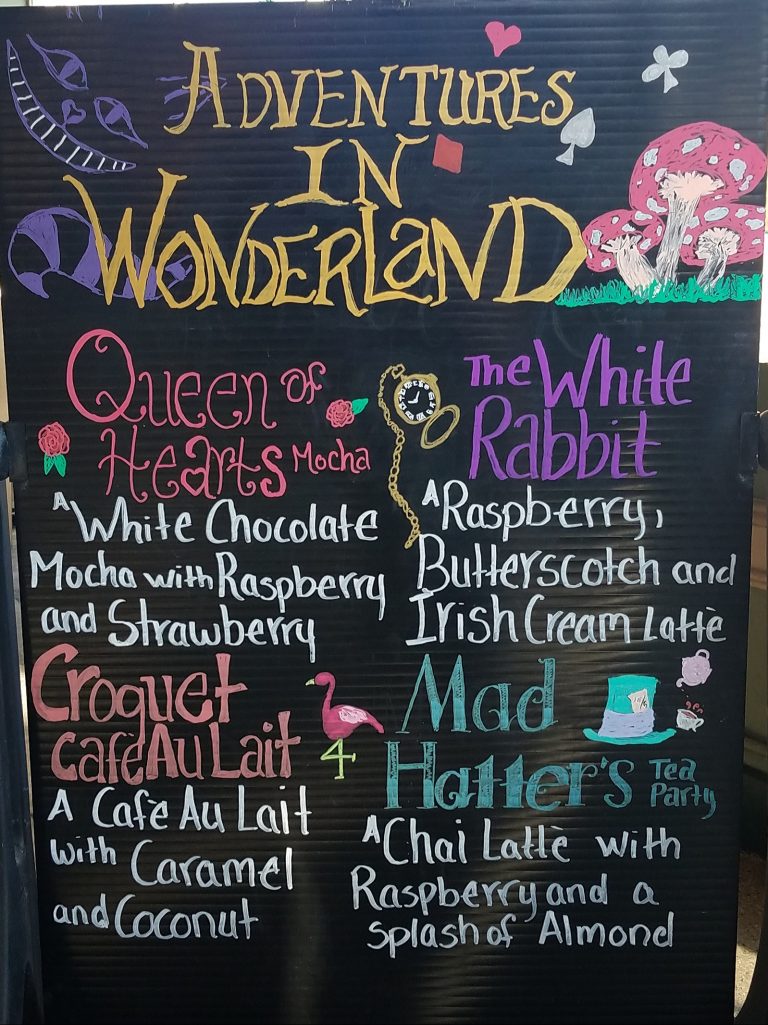 ADVENTURES
IN
WONDERLAND
Queen of
Hearts Mocha
A White Chocolate
Mocha with Raspberry
and Strawberry
The White
Rabbit
A Raspberry,
Butterscotch and
Irish Cream Lattè
Croquet
cafè Au Lait
A Cafè Au Lait
with Caramel
and Coconut
Mad
Hatter's Tea
Party
A Chai Lattè with
Raspberry and a
splash of Almond